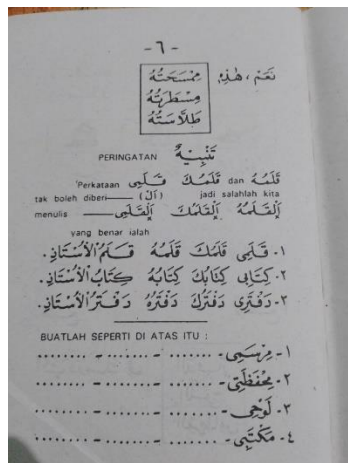 -٦-
نَعَمْ ، هٰذِهِ مِمْسَحَتُهُ
مِسْطَرَتُهُ
طَلَّاسَتُهُ
PERINGATAN تَنْبِيْهٌ
Perkataan قَلَمِى قَلَمُكَ dan قَلَمُهُ
tak boleh diberi —— (اَلْ) jadi salahlah kita
menulis —— اَلْقَلَمِى اَلْقَلَمُكَ اَلْقَلَمُهُ
yang benar ialah
١- قَلَمِى قَلَمُكَ قَلَمُهُ قَلَمُ الْأُسْتَاذِ.
٢- كِتَابِى كِتَابُكَ كِتَابُهُ كِتَابُ الْأُسْتَاذِ.
٣- دَفْتَرِى دَفْتَرُكَ دَفْتَرُهُ دَفْتَرُ الْأُسْتَاذِ.
BUATLAH SEPERTI DI ATAS ITU :
١- مِرْسَمِى- ....... - ....... - .......
٢- مِحْفَظَتِى- ....... - ....... - .......
٣- لَوْحِى- ....... - ....... - .......
٤- مَكْتَبِى- ....... - ....... - .......